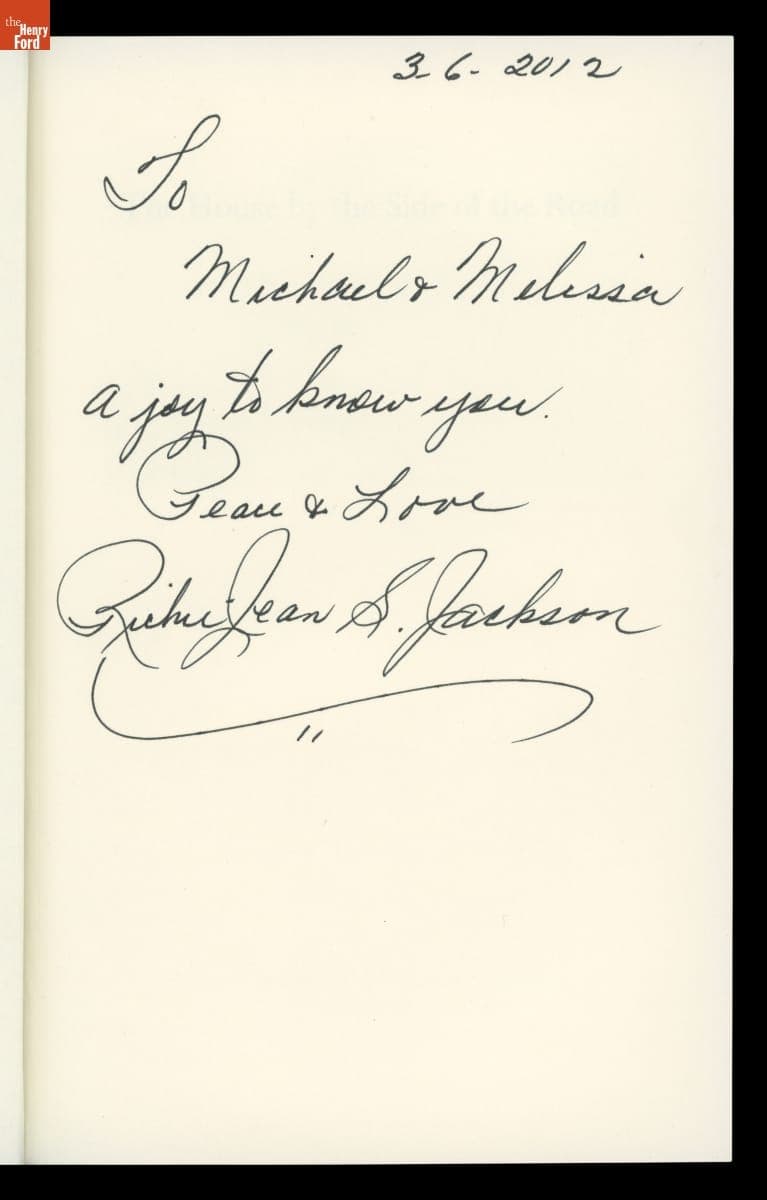 the Henry Ford
3-6-2012
To
Michael & Melissa
a joy to know you.
Peace & Love
Richie Jean S. Jackson
The House by the Side of the Road